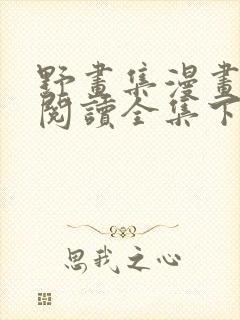 野畫集漫畫
閱讀全集下
思我之心